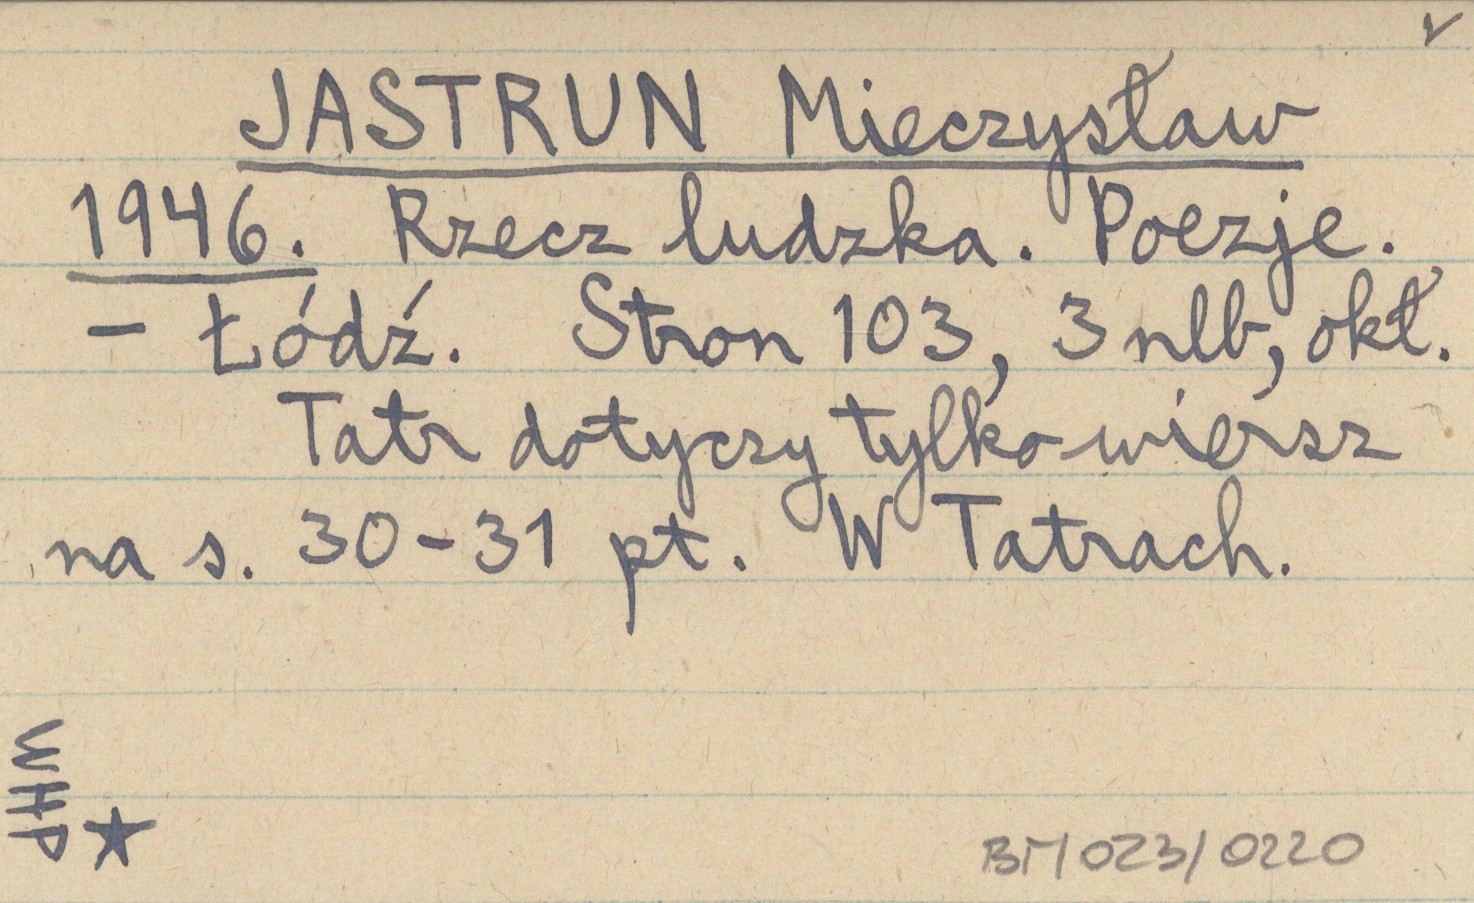 JASTRUN Mieczysław
1946. Rzecz ludzka. Poezje.
– Łódź. Stron 103, 3 nlb, okł.
Tatr dotyczy tylko wiersz
na s. 30-31 pt. W Tatrach.
WHP
BM/023/0220